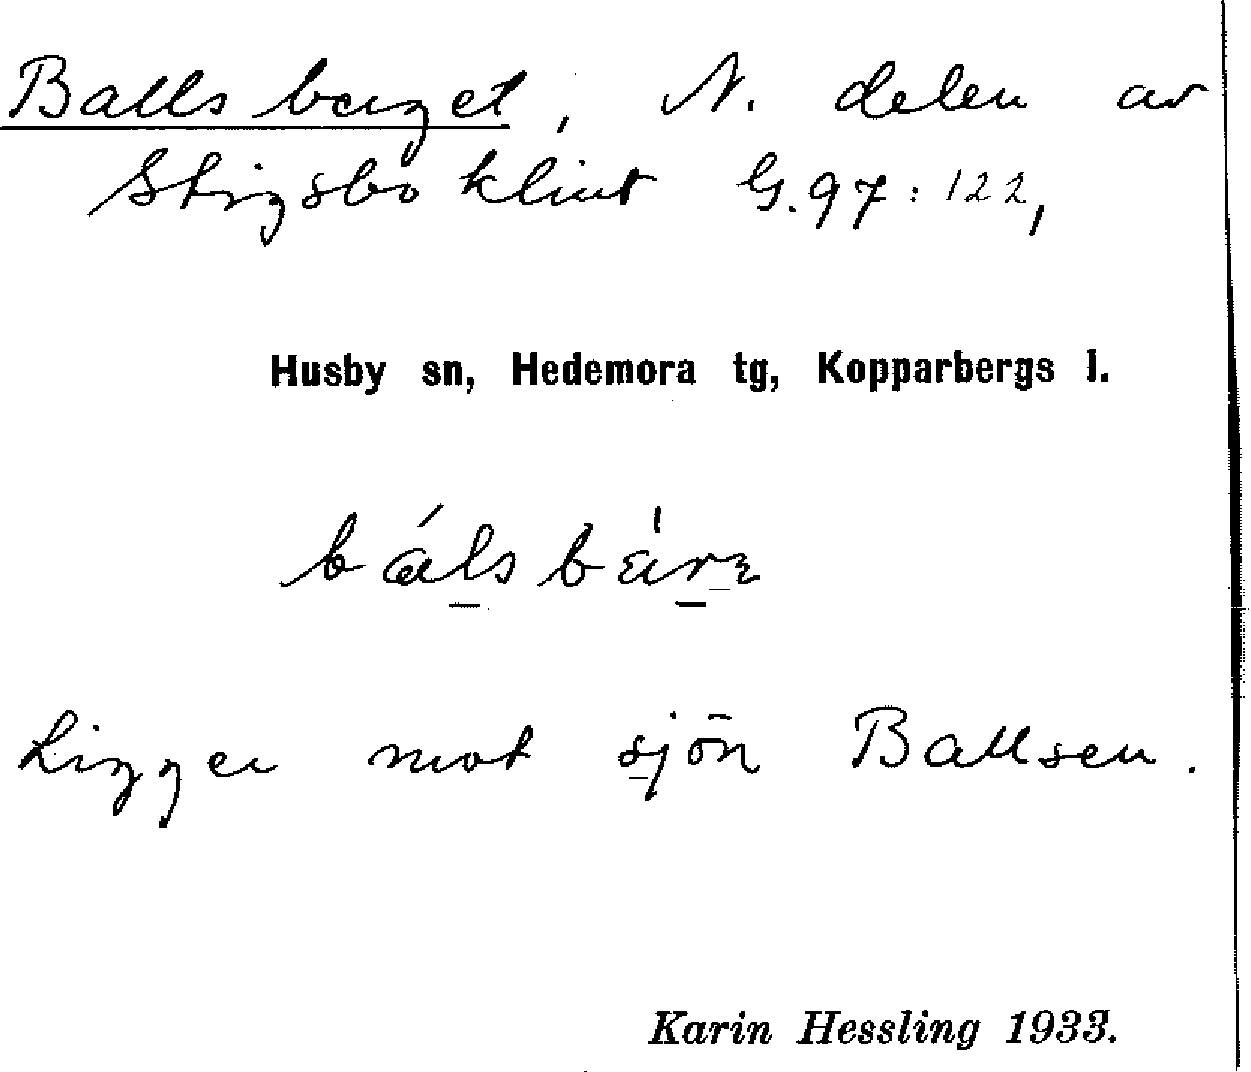 Ballsberget, N. delen av
Stigsbo klint G. 97:122,
Husby sn, Hedemora tg, Kopparbergs l.
Ligger mot sjön Ballsen.
Karin Hessling 1933.